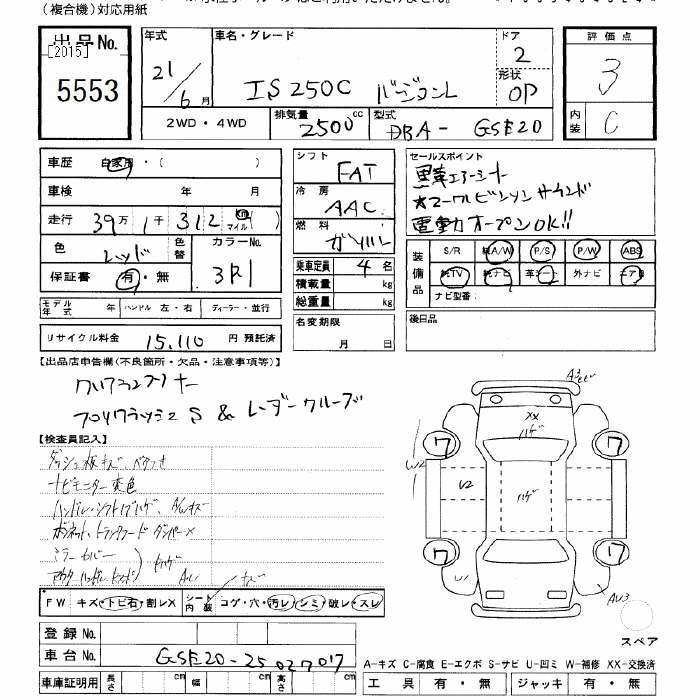 （複合機）対応用紙
出品No.
[2015]
5553
年式
21/6月
車名・グレード
IS250C バージョンL
ドア
2
形状
OP
評価点
3
内装
C
2WD・4WD
排気量
2500cc
型式
DBA- GSE20
車歴 自家用・（ ）
車検 年 月
走行 39万1千312 km マイル（ ）
色 レッド 色替 カラーNo. 3R1
保証書 有・無
モデル年式 年 ハンドル 左・右 ディーラー・並行
リサイクル料金 15,110 円 預託済
シフト
FAT
冷房
AAC
燃料
ガソリン
乗車定員 4 名
積載量 kg
総重量 kg
名変期限
月 日
セールスポイント
黒革エアーシート
★マークレビンソンサウンド
電動オープンOK!!
装備品
S/R 純A/W P/S P/W ABS
純TV 純ナビ 革シート 外ナビ エアB
ナビ型番：
後日品
【出品店申告欄（不良箇所・欠品・注意事項等）】
S & レーダークルーズ
【検査員記入】
ダッシュ板キズ、ベタつき
ナビモニター変色
ハンドル・シフトノブハゲ、A/Wキズ
ボンネット、トランクフード ダンパー×
ミラーカバー
FW キズ・トビ石・割レX
シート内装 コゲ・穴・汚レ・シミ・破レ・スレ
登録No.
車台No. GSE20-2502707
車庫証明用 長さ cm 幅 cm 高さ cm
A3
XX
ハゲ
W
W
W2
U2
ハゲ
W
W
AU3
スペア
A-キズ C-腐食 E-エクボ S-サビ U-凹ミ W-補修 XX-交換済
工具 有・無 ジャッキ 有・無